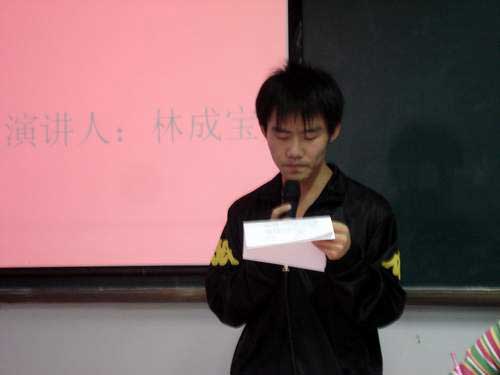 演讲人：林成宝